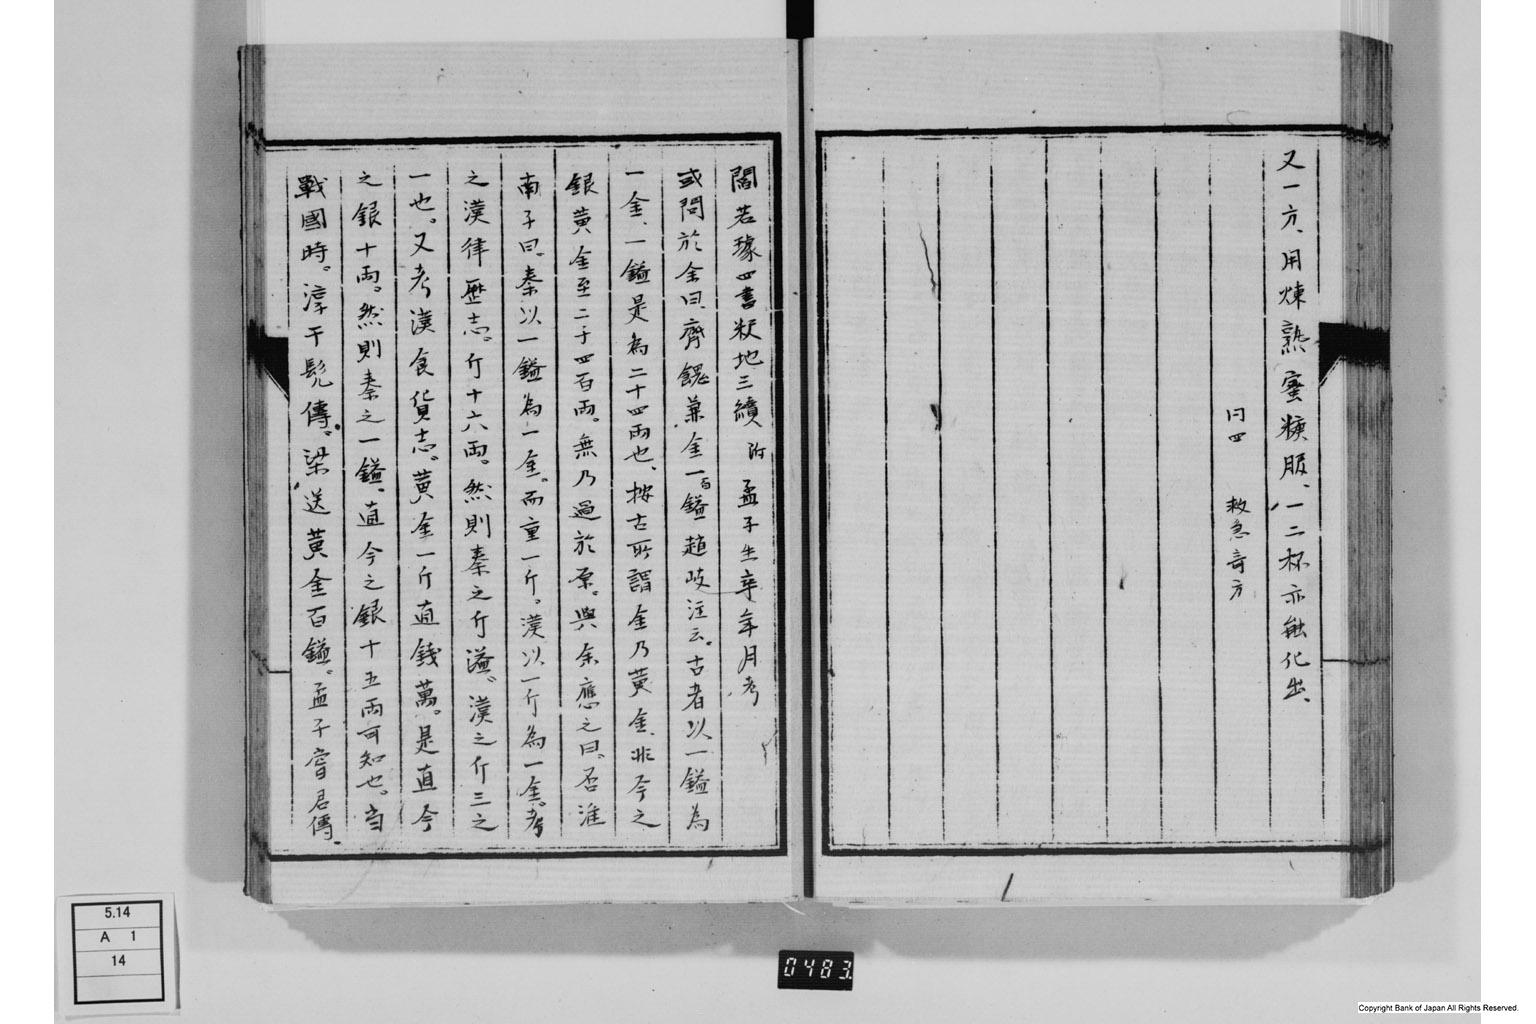 又一方、用煉熟蜜頻服、一二杯亦能化出、
同四　救急奇方
閻若璩四書釈地三續　附　孟子生卒年月考
或問於余曰齊餽兼金一百鎰趙岐注云。古者以一鎰為
一金、一鎰是為二十四兩也、按古所謂金乃黄金、非今之
銀黄金至二千四百兩。無乃過於厚。與余應之曰。否淮
南子曰。秦以一鎰為一金。而重一斤。漢以一斤為一金。考
之漢律歴志。斤十六兩。然則秦之斤溢。漢之斤三之
一也。又考漢食貨志。黄金一斤直錢萬。是直今
之銀十兩。然則秦之一鎰。直今之銀十五兩可知也。当
戰國時。淳于髡傳。梁送黄金百鎰。孟子嘗君傳。
5.14
A 1
14
0483
Copyright Bank of Japan All Rights Reserved.